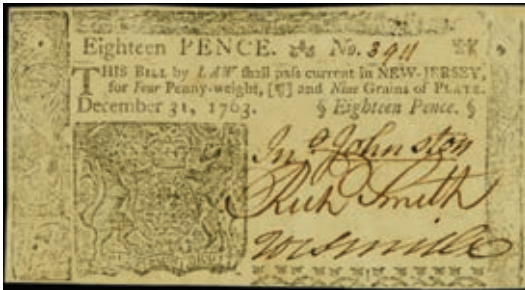 Eighteen PENCE. No. 3911
THIS BILL by LAW shall pass current in NEW-JERSEY,
for Four Penny-weight, and Nine Grains of PLATE.
December 31, 1763. § Eighteen Pence. §
Jno Johnston
Rich Smith